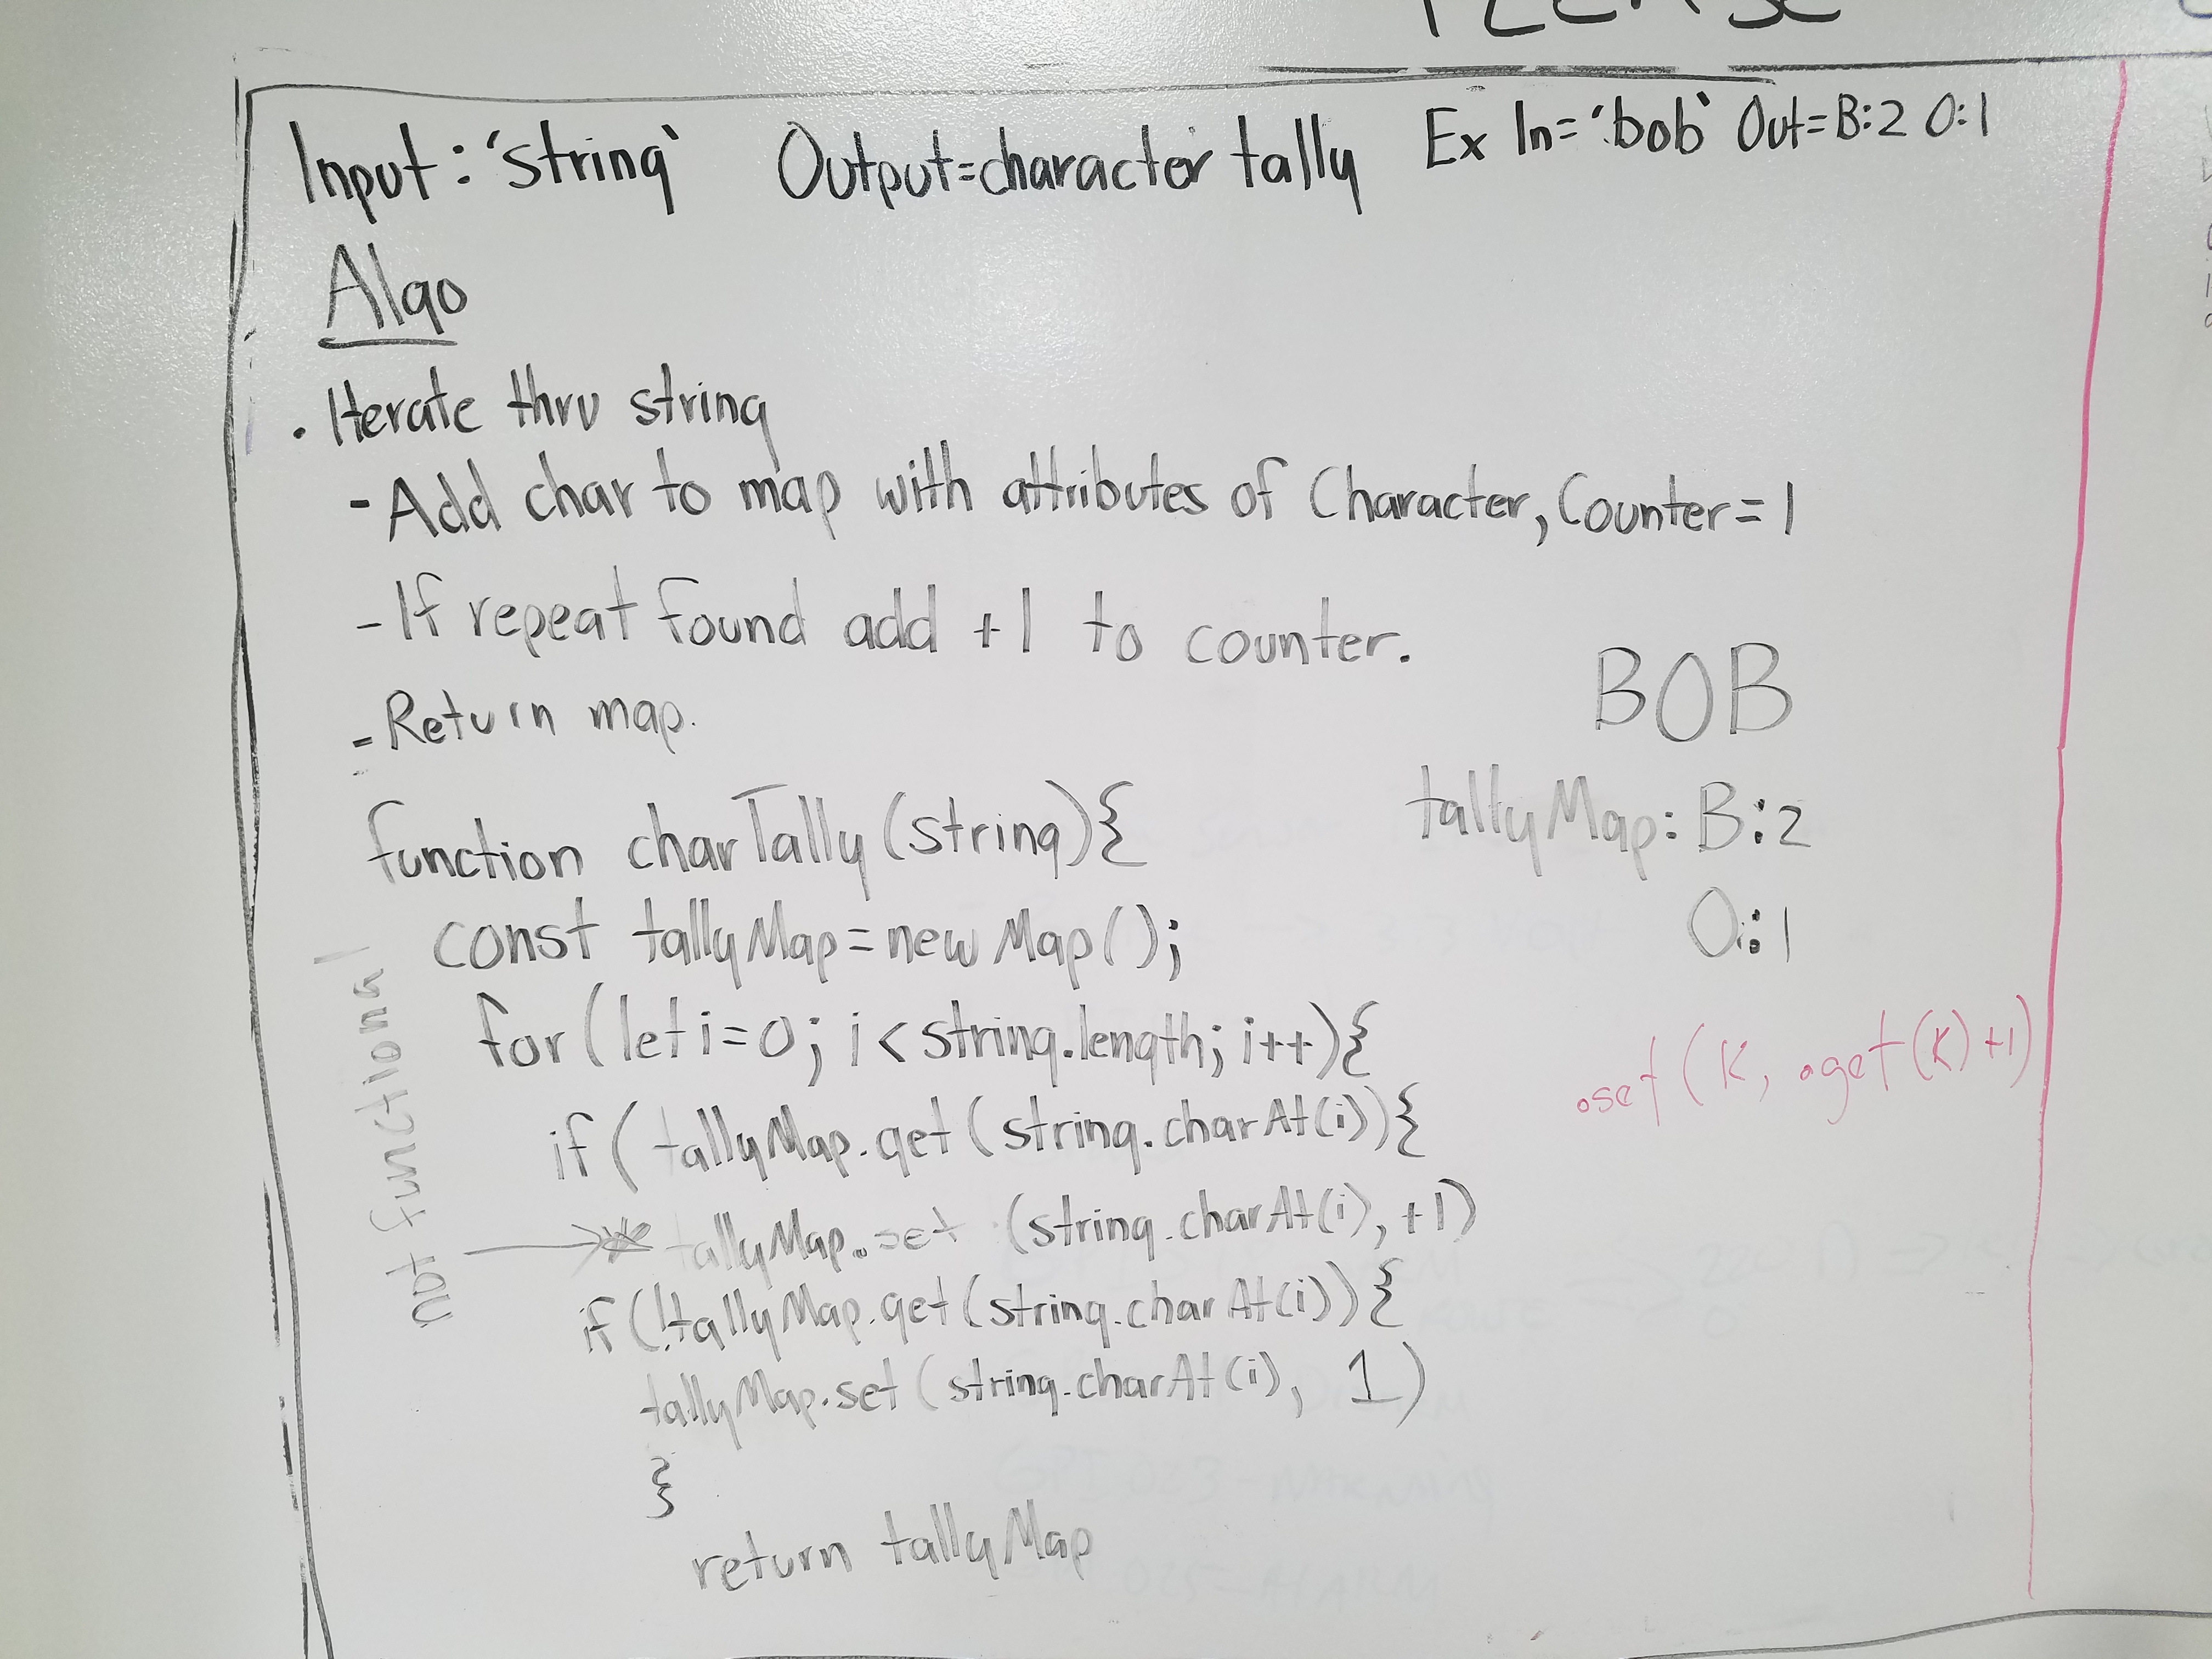 PLEASE
Input: 'string' Output=character tally Ex In='bob' Out=B:2 O:1
Algo
. Iterate thru string
- Add char to map with attributes of Character, Counter=1
- If repeat found add +1 to counter.
- Return map.
BOB
tallyMap: B:2
O:1
function charTally(string){
const tallyMap=new Map();
for(let i=0; i<string.length; i++){
.set(K, .get(K)+1)
if(tallyMap.get(string.charAt(i)){
tallyMap.set (string.charAt(i), +1)
if(!tallyMap.get(string.charAt(i)){
tallyMap.set(string.charAt(i), 1)
}
return tallyMap
not functional